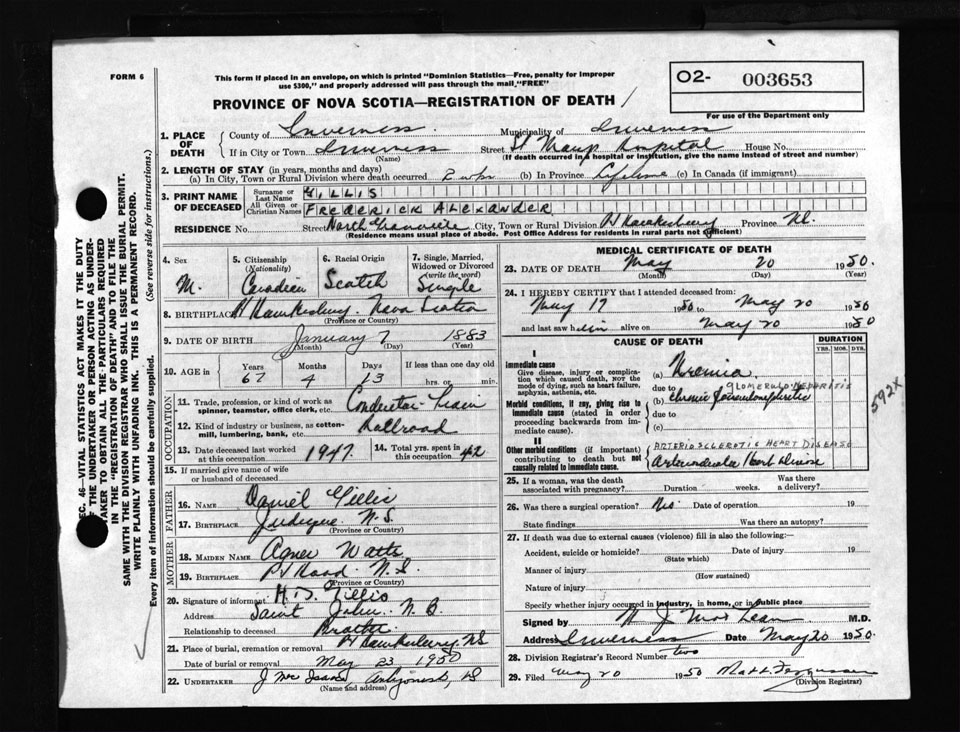 FORM 6
This form if placed in an envelope, on which is printed "Dominion Statistics—Free, penalty for improper
use $300," and properly addressed will pass through the mail "FREE"
O2- 003653
For use of the Department only
PROVINCE OF NOVA SCOTIA—REGISTRATION OF DEATH
1. PLACE OF DEATH
County of Inverness Municipality of Inverness
If in City or Town Inverness Street St Marys Hospital House No.
(Name) (If death occurred in a hospital or institution, give the name instead of street and number)
2. LENGTH OF STAY (in years, months and days)
(a) In City, Town or Rural Division where death occurred 2 wks (b) In Province Lifetime (c) In Canada (if immigrant)
3. PRINT NAME OF DECEASED
Surname or Last Name GILLIS
All Given or Christian Names FREDERICK ALEXANDER
RESIDENCE No. Street North City, Town or Rural Division Pt Hawkesbury Province N.S.
(Residence means usual place of abode. Post Office Address for residents in rural parts not sufficient)
4. Sex M.
5. Citizenship (Nationality) Canadian
6. Racial Origin Scotch
7. Single, Married, Widowed or Divorced (write the word) Single
8. BIRTHPLACE Pt Hawkesbury. Nova Scotia
(Province or Country)
9. DATE OF BIRTH January 7 1883
(Month) (Day) (Year)
10. AGE in Years 67 Months 4 Days 13 If less than one day old
hrs. or min.
OCCUPATION
11. Trade, profession, or kind of work as spinner, teamster, office clerk, etc. Conductor Train
12. Kind of industry or business, as cotton-mill, lumbering, bank, etc. Railroad
13. Date deceased last worked at this occupation 1947.
14. Total yrs. spent in this occupation 42
15. If married give name of wife or husband of deceased
FATHER
16. NAME Daniel Gillis
17. BIRTHPLACE Judique N.S.
(Province or Country)
MOTHER
18. MAIDEN NAME Agnes Watts
19. BIRTHPLACE Pt Hood. N.S.
(Province or Country)
20. Signature of informant Gillis
Address Saint John. N.B.
Relationship to deceased Brother
21. Place of burial, cremation or removal Pt Hawkesbury, NS
Date of burial or removal May 23 1950
22. UNDERTAKER J Mc Isaac Antigonish, NS
(Name and address)
MEDICAL CERTIFICATE OF DEATH
23. DATE OF DEATH May 20 1950.
(Month) (Day) (Year)
24. I HEREBY CERTIFY that I attended deceased from:
May 17 1950 to May 20 1950
and last saw him alive on May 20 1950
CAUSE OF DEATH
DURATION
YRS. MOS. DYS.
I
Immediate cause
Give disease, injury or complication which caused death, not the mode of dying, such as heart failure, asphyxia, asthenia, etc.
(a) Uremia.
due to GLOMERULO-NEPHRITIS
Morbid conditions, if any, giving rise to immediate cause (stated in order proceeding backwards from immediate cause).
(b) Chronic Glomerulonephritis
due to
(c)
592X
II
Other morbid conditions (if important) contributing to death but not causally related to immediate cause.
ARTERIOSCLEROTIC HEART DISEASE
Arteriosclerotic Heart Disease
25. If a woman, was the death associated with pregnancy? Duration weeks. Was there a delivery?
26. Was there a surgical operation? No Date of operation 19
State findings Was there an autopsy?
27. If death was due to external causes (violence) fill in also the following:
Accident, suicide or homicide? Date of injury 19
(State which)
Manner of injury
(How sustained)
Nature of injury
Specify whether injury occurred in industry, in home, or in public place
Signed by N J MacLean M.D.
Address Inverness Date May 20 1950.
28. Division Registrar's Record Number two
29. Filed May 20 1950 Matt Fergusson
(Division Registrar)
SEC. 46—VITAL STATISTICS ACT MAKES IT THE DUTY
OF THE UNDERTAKER OR PERSON ACTING AS UNDER-
TAKER TO OBTAIN ALL THE PARTICULARS REQUIRED
IN THE "REGISTRATION OF DEATH" AND TO FILE THE
SAME WITH THE DIVISION REGISTRAR WHO SHALL ISSUE THE BURIAL PERMIT.
WRITE PLAINLY WITH UNFADING INK. THIS IS A PERMANENT RECORD.
Every item of information should be carefully supplied. (See reverse side for instructions.)